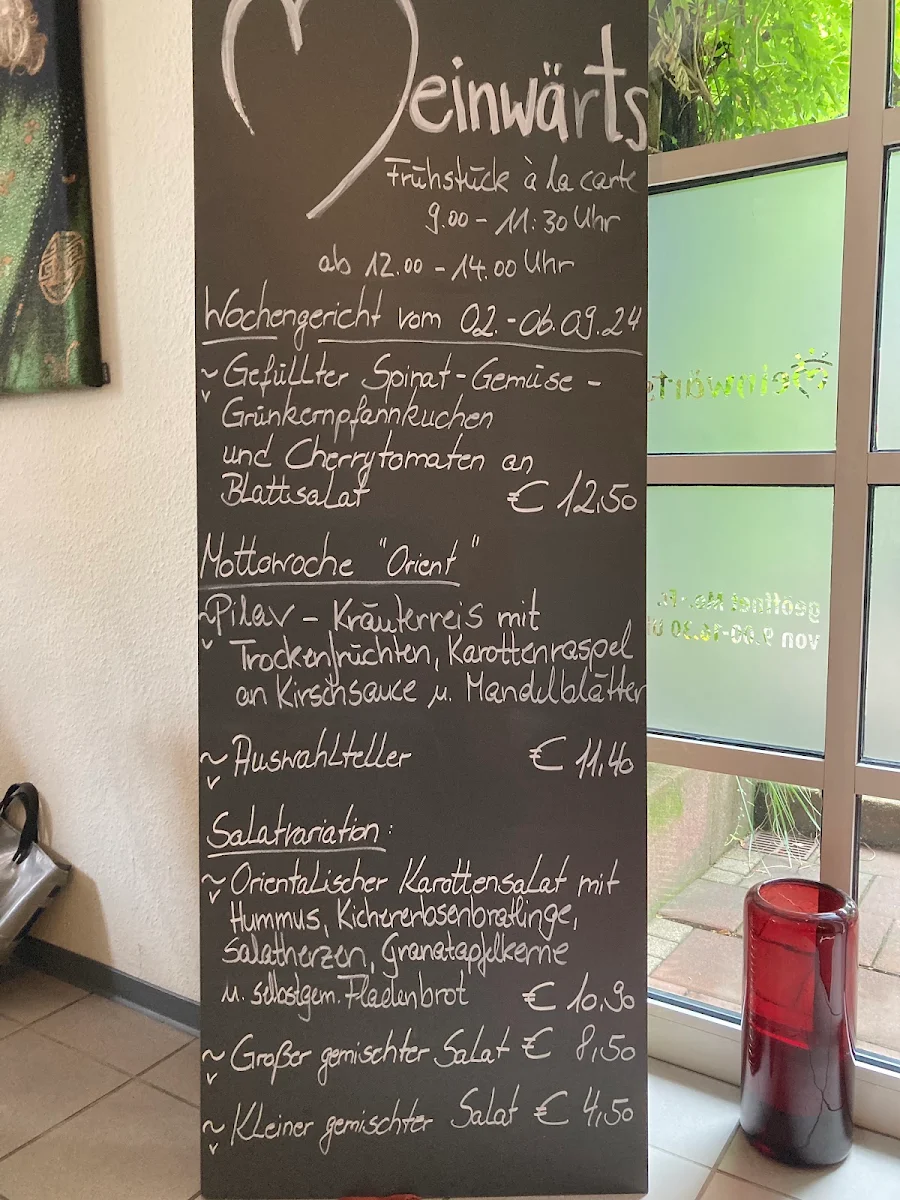 Meinwärts
Frühstück à la carte
9.00 - 11:30 Uhr
ab 12.00 - 14.00 Uhr
Wochengericht vom 02. - 06.09.24
~ Gefüllter Spinat - Gemüse -
v Grünkernpfannkuchen
und Cherrytomaten an
Blattsalat € 12,50
Mottowoche "Orient"
~ Pilav - Kräuterreis mit
v Trockenfrüchten, Karottenraspel
an Kirschsauce u. Mandelblätter
~ Auswahlteller € 11,40
v
Salatvariation:
~ Orientalischer Karottensalat mit
v Hummus, Kichererbsenbratlinge,
Salatherzen, Granatapfelkerne
u. selbstgem. Fladenbrot € 10,90
~ Großer gemischter Salat € 8,50
v
~ Kleiner gemischter Salat € 4,50
v
Meinwärts
geöffnet Mo.-Fr.
von 9.00-16.30 U